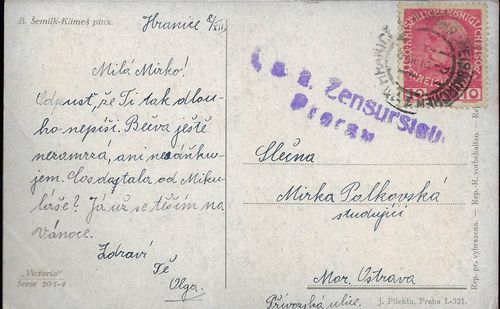 B. Šemilk-Klimeš pinx.
Hranice
Milá Mirko!
Odpusť, že Ti tak dlou-
ho nepíši. Bečva ještě
nezamrzá, ani nesáňku-
jem. Cos dostala od Miku-
láše? Já už se těším na
Vánoce.
Zdraví
Tě
Olga.
„Victoria"
Serie 101-4
k. u. k. Zensurstelle
Prerau
Slečna
Mirka Polkovská
studující
Mor. Ostrava
Přívozská ulice.
Rep. pr. vyhrazena. — Rep.-R. vorbehalten.
J. Pliehta, Praha I.-321.